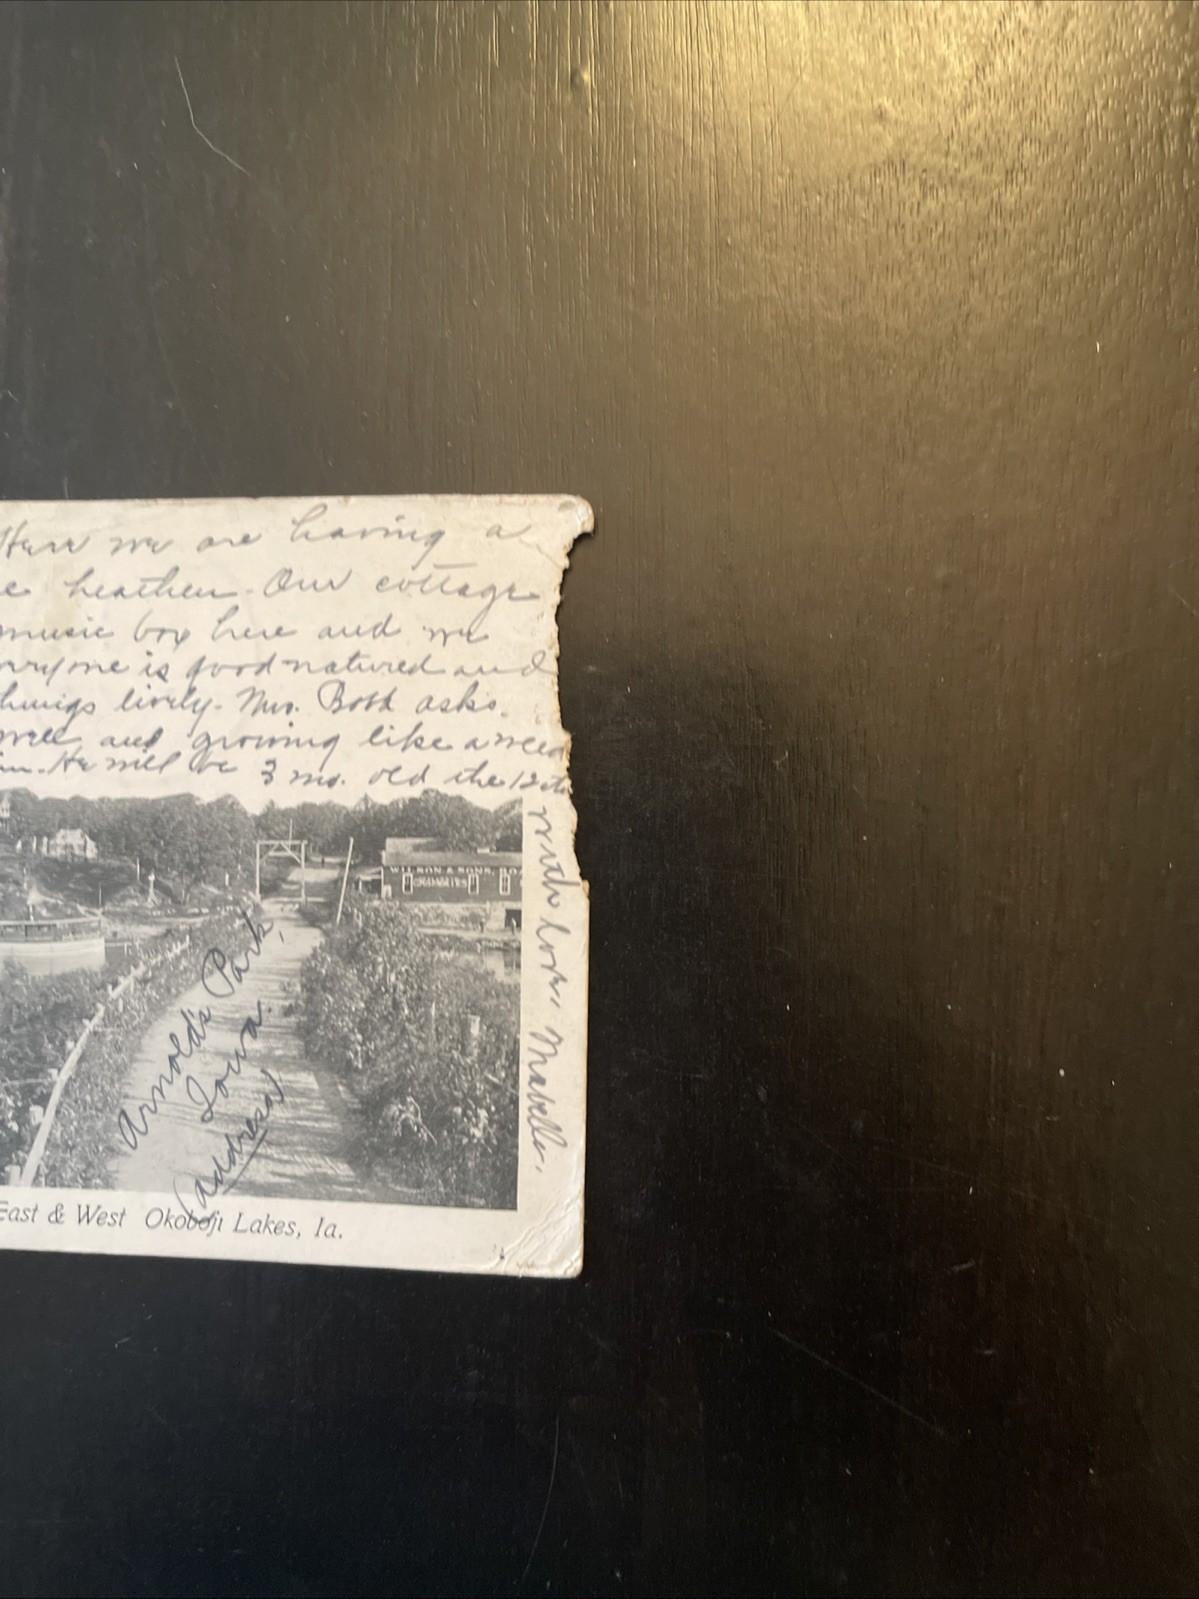 Here we are having a
e heathen. Our cottage
music box here and we
everyone is good-natured and
things lively. Mrs. Both asks.
well and growing like a weed
He will be 3 mo. old the 12th
with love, Mabelle.
WILSON & SONS, BOA
Arnold's Park,
Iowa.
(address)
East & West Okoboji Lakes, Ia.